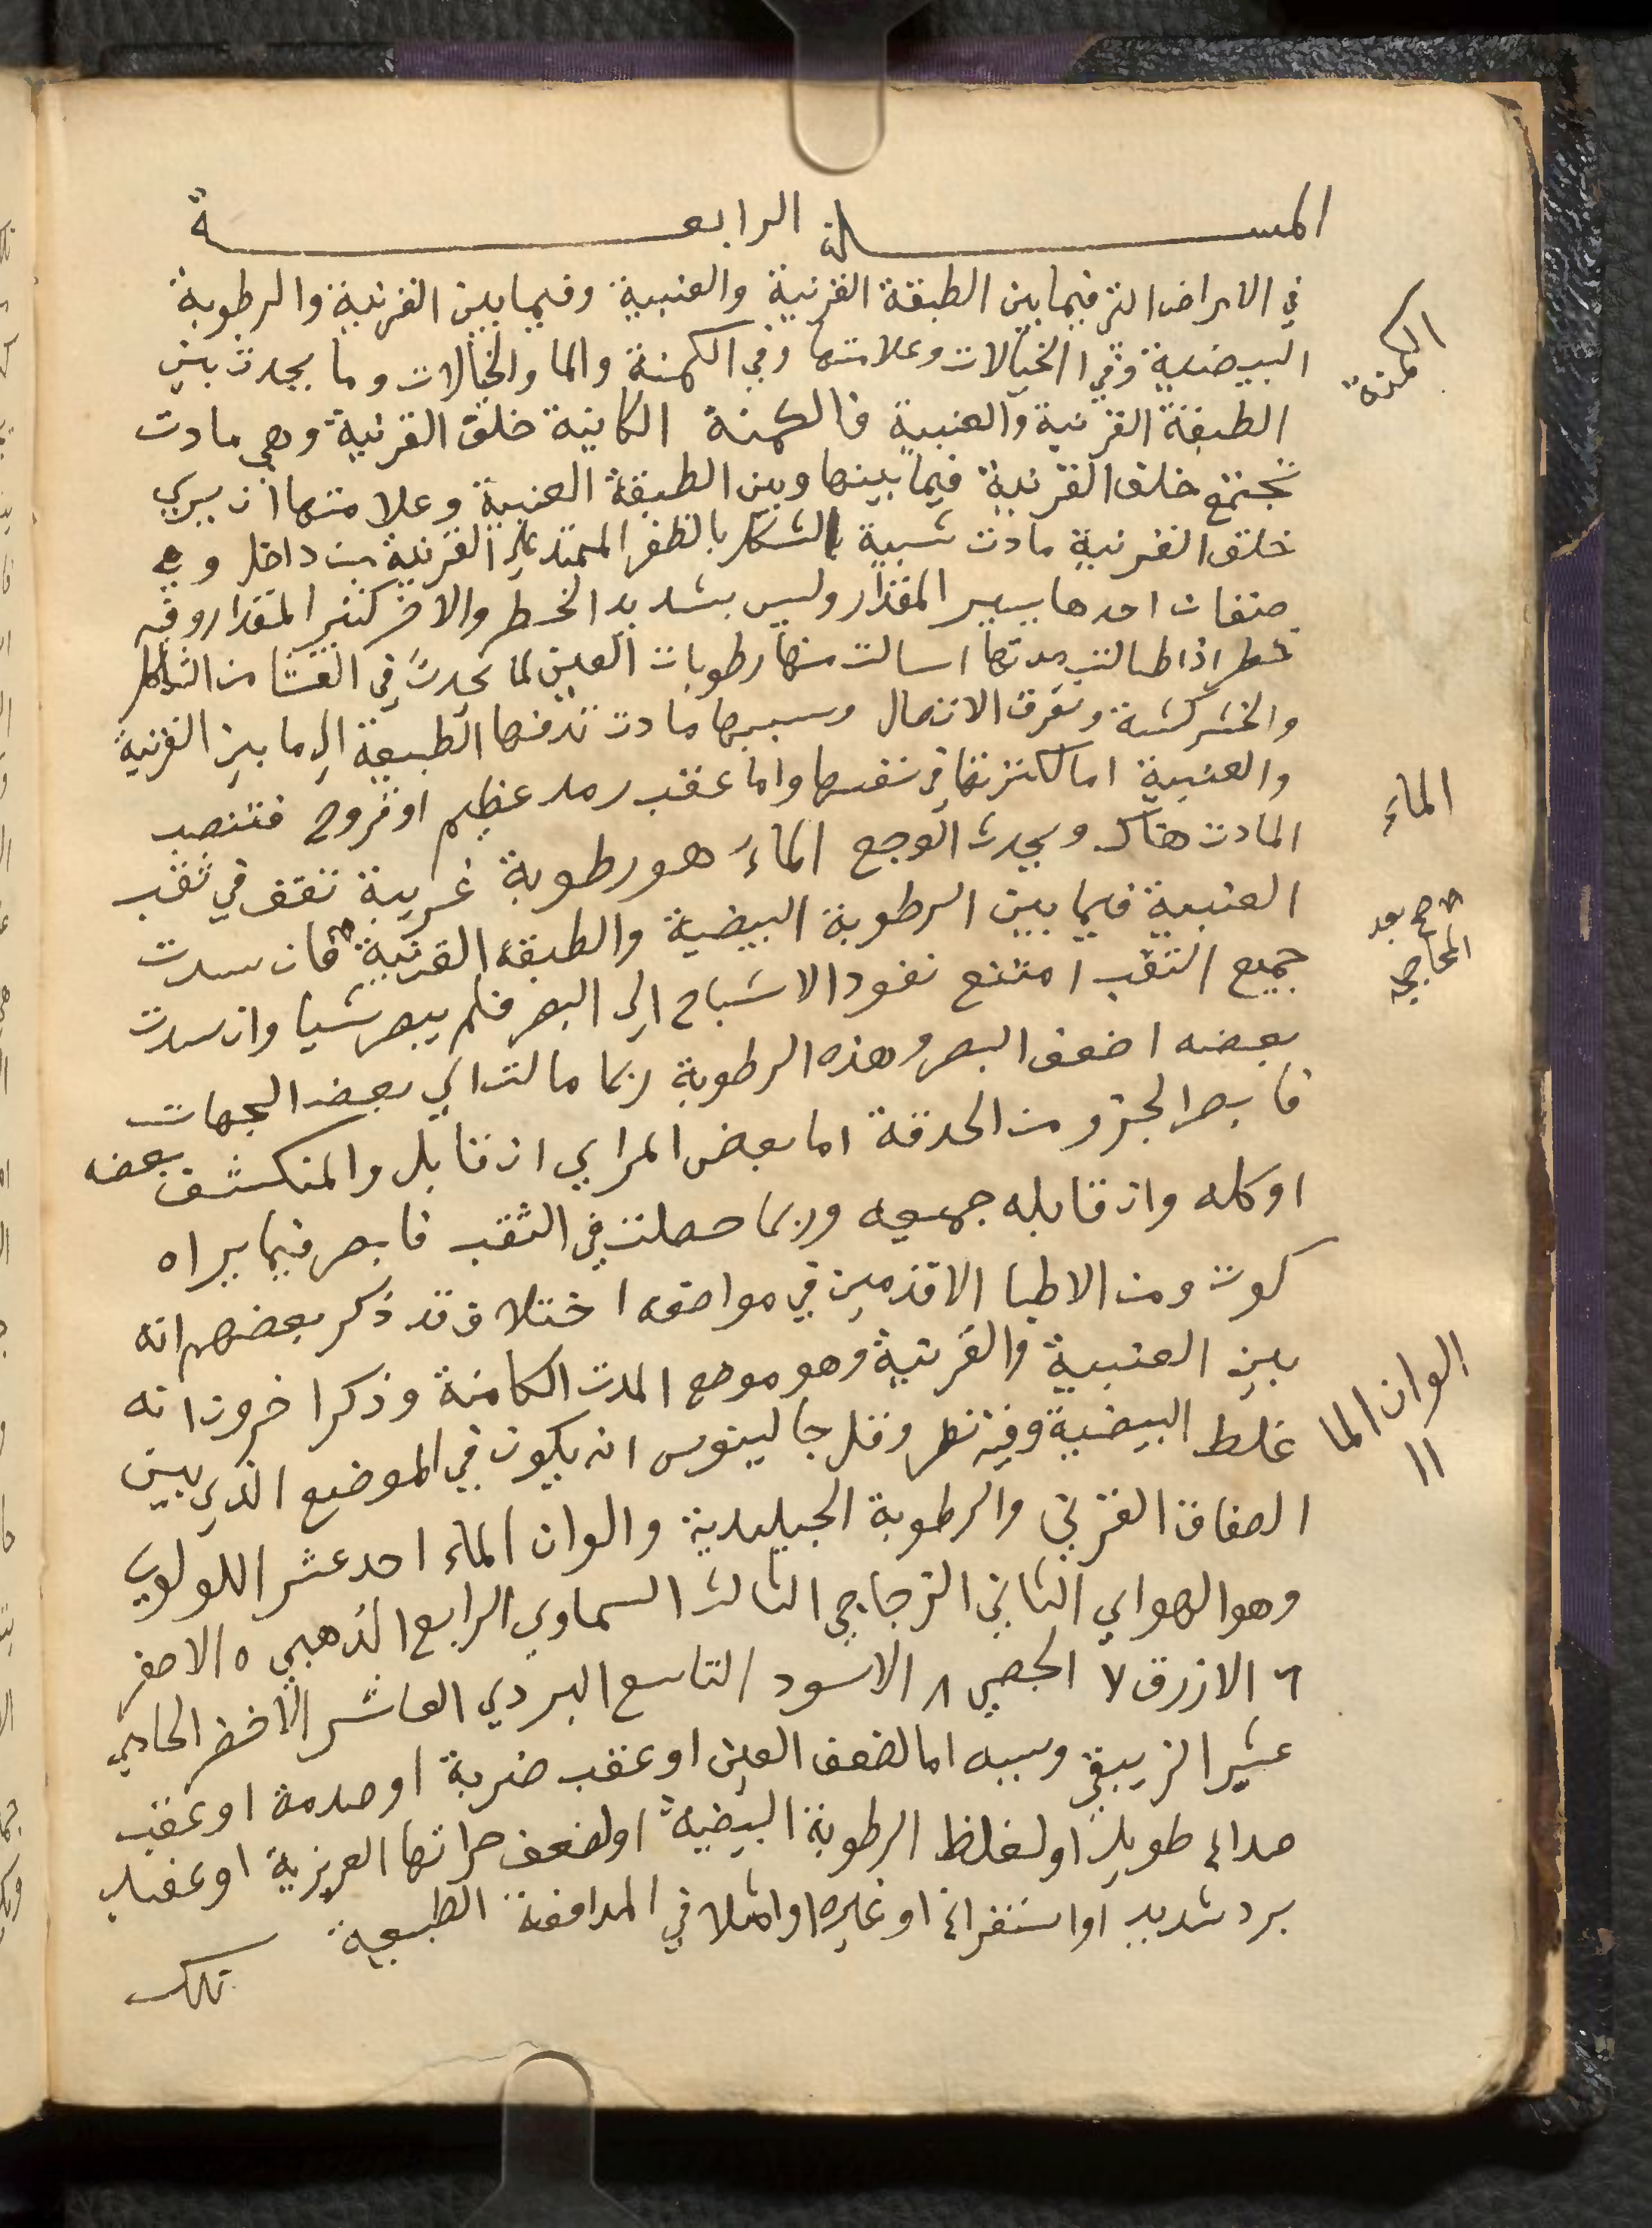 المسالة الرابعة
في الامراض التي فيما بين الطبقة القرنية والعنبية وفيما بين القرنية والرطوبة
البيضية وفي الخيالات وعلامتها وفي الكمنة والما والخيالات وما يحدث بين
الطبقة القرنية والعنبية فالكمنة الكاينة خلف القرنية وهي مادت
تجتمع خلف القرنية فيما بينها وبين الطبقة العنبية وعلامتها ان يري
خلف القرنية مادت شبيه الشكل بالظفر الممتد علي القرنية من داخل وهي
صنفان احدها يسير المقدار وليس بشديد الخطر والاخر كثير المقدار وفيه
خطر اذا طالت مدتها اسالت منها رطوبات العين لما يحدث في الغشا من التاكل
والخشركشة وتفرق الاتصال وسببها مادت تدفعها الطبيعة الي ما بين القرنية
والعنبية اما لكثرتها في نفسها واما عقب رمد عظيم او قروح فتنصب
المادت هناك ويحدث الوجع الماء هو رطوبة غريبة تقف في ثقب
العنبية فيما بين الرطوبة البيضية والطبقة القرنية فان سدت
جميع الثقب امتنع نفود الاشباح الي البصر فلم يبصر شيا وان سدت
بعضه اضعف البصر وهذه الرطوبة ربما مالت الي بعض الجهات
فابصر الجزو من الحدقة اما بعض المراي ان قابل والمنكشف بعضه
او كله وان قابله جميعه وربما حصلت في الثقب فابصر فيما يراه
كوت ومن الاطبا الاقدمين في مواضعه اختلاف قد ذكر بعضهم انه
بين العنبية والقرنية وهو موضع المدت الكامنة وذكر اخرون انه
غلط البيضية وفيه نظر ونقل جالينوس انه يكون في الموضع الذي بين
الصفاق القرني والرطوبة الجليدية والوان الماء احد عشر اللولوي
وهو الهواي الثاني الزجاجي الثالث السماوي الرابع الذهبي ٥ الاصفر
٦ الازرق ٧ الجصي ٨ الاسود التاسع البردي العاشر الاخضر الحادي
عشر الزيبقي وسببه اما لضعف العين او عقب ضربة او صدمة او عقب
صداع طويل او لغلظ الرطوبة البيضية او لضعف حراتها العريزية او عقيب
برد شديد او استفراغ او غيره او امثلا في المدافعة الطبيعية
تلك
الكمنة
الماء
صح بعد
الوان الما
١١